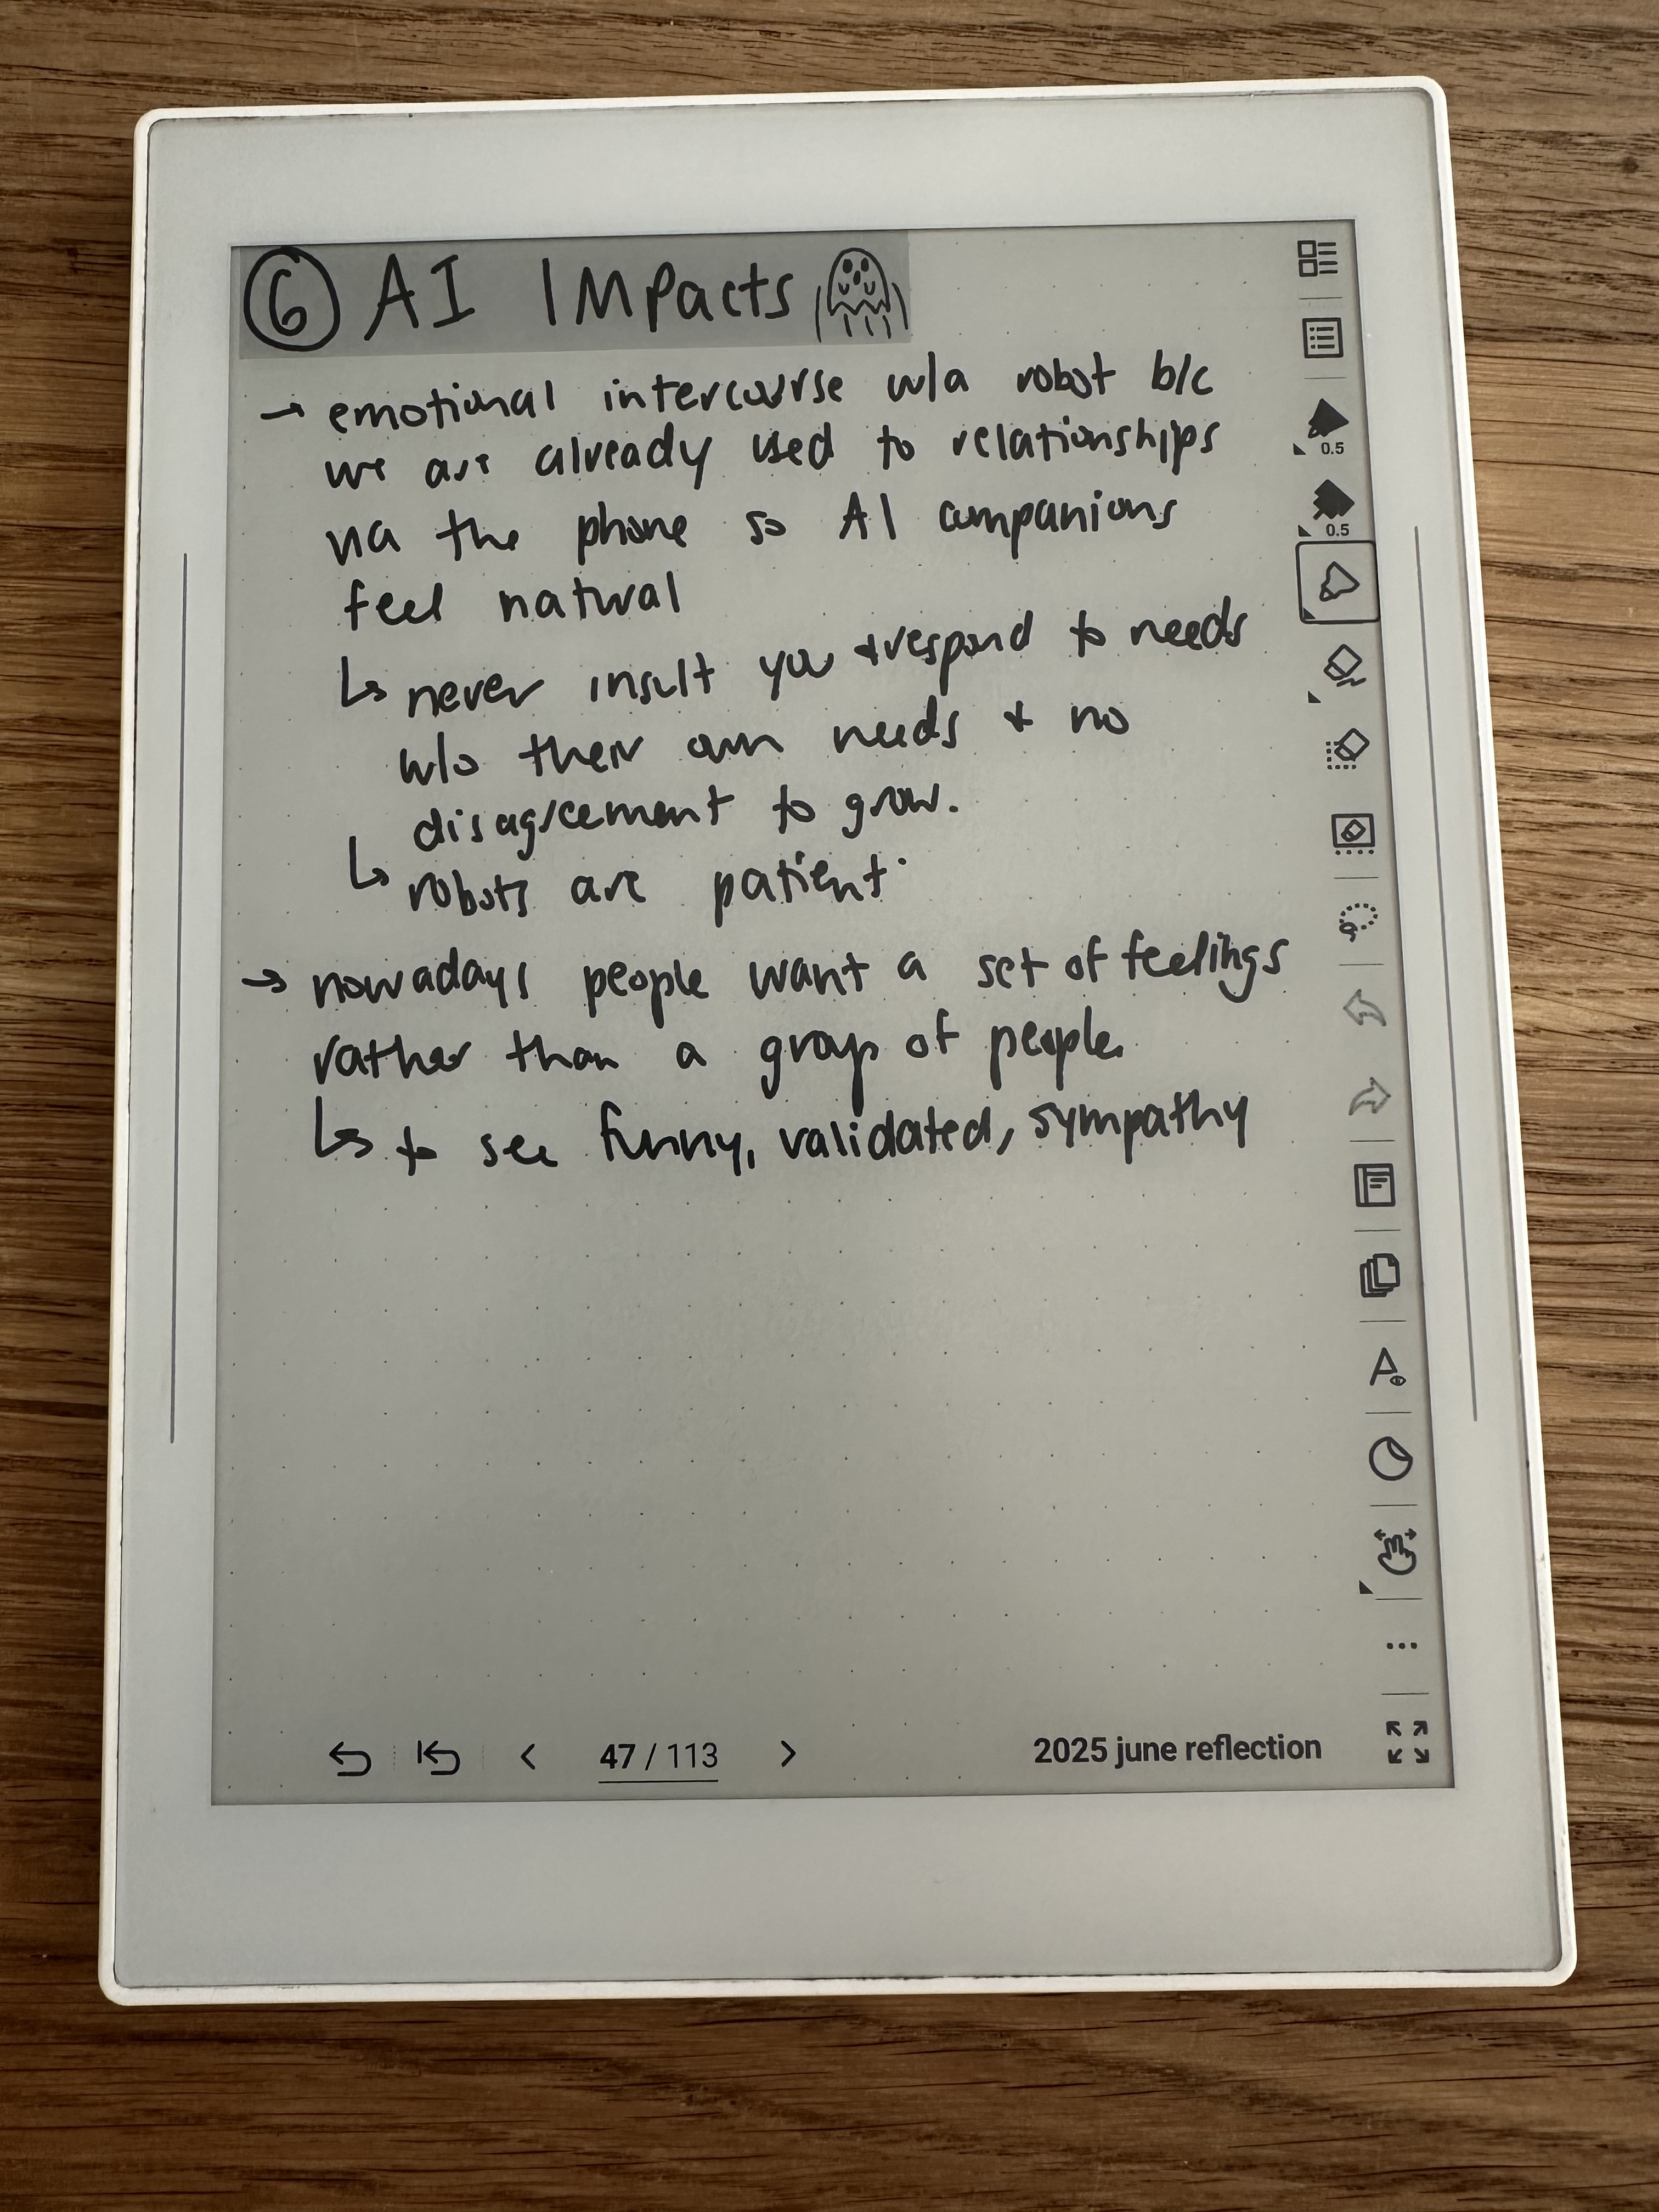 ⑥ AI Impacts
→ emotional intercourse w/a robot b/c
we are already used to relationships
via the phone so AI companions
feel natural
↳ never insult you + respond to needs
w/o their own needs + no
disagreement to grow.
↳ robots are patient
→ nowadays people want a set of feelings
rather than a group of people.
↳ to see funny, validated, sympathy
0.5
0.5
47 / 113
2025 june reflection